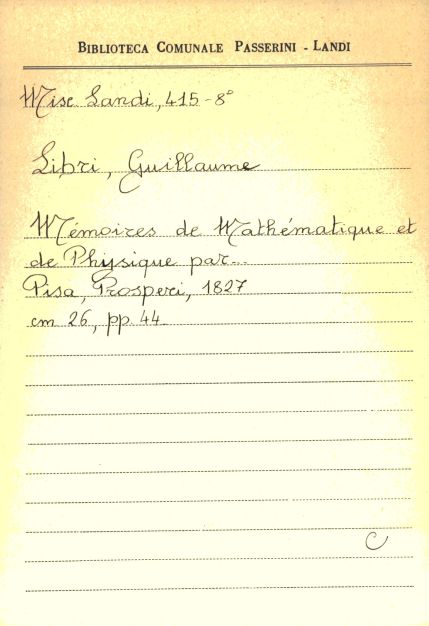 BIBLIOTECA COMUNALE PASSERINI - LANDI
Misc Landi, 415-8°
Libri, Guillaume
Mémoires de Mathématique et
de Physique par...
Pisa, Prosperi, 1827
cm 26, pp. 44
C